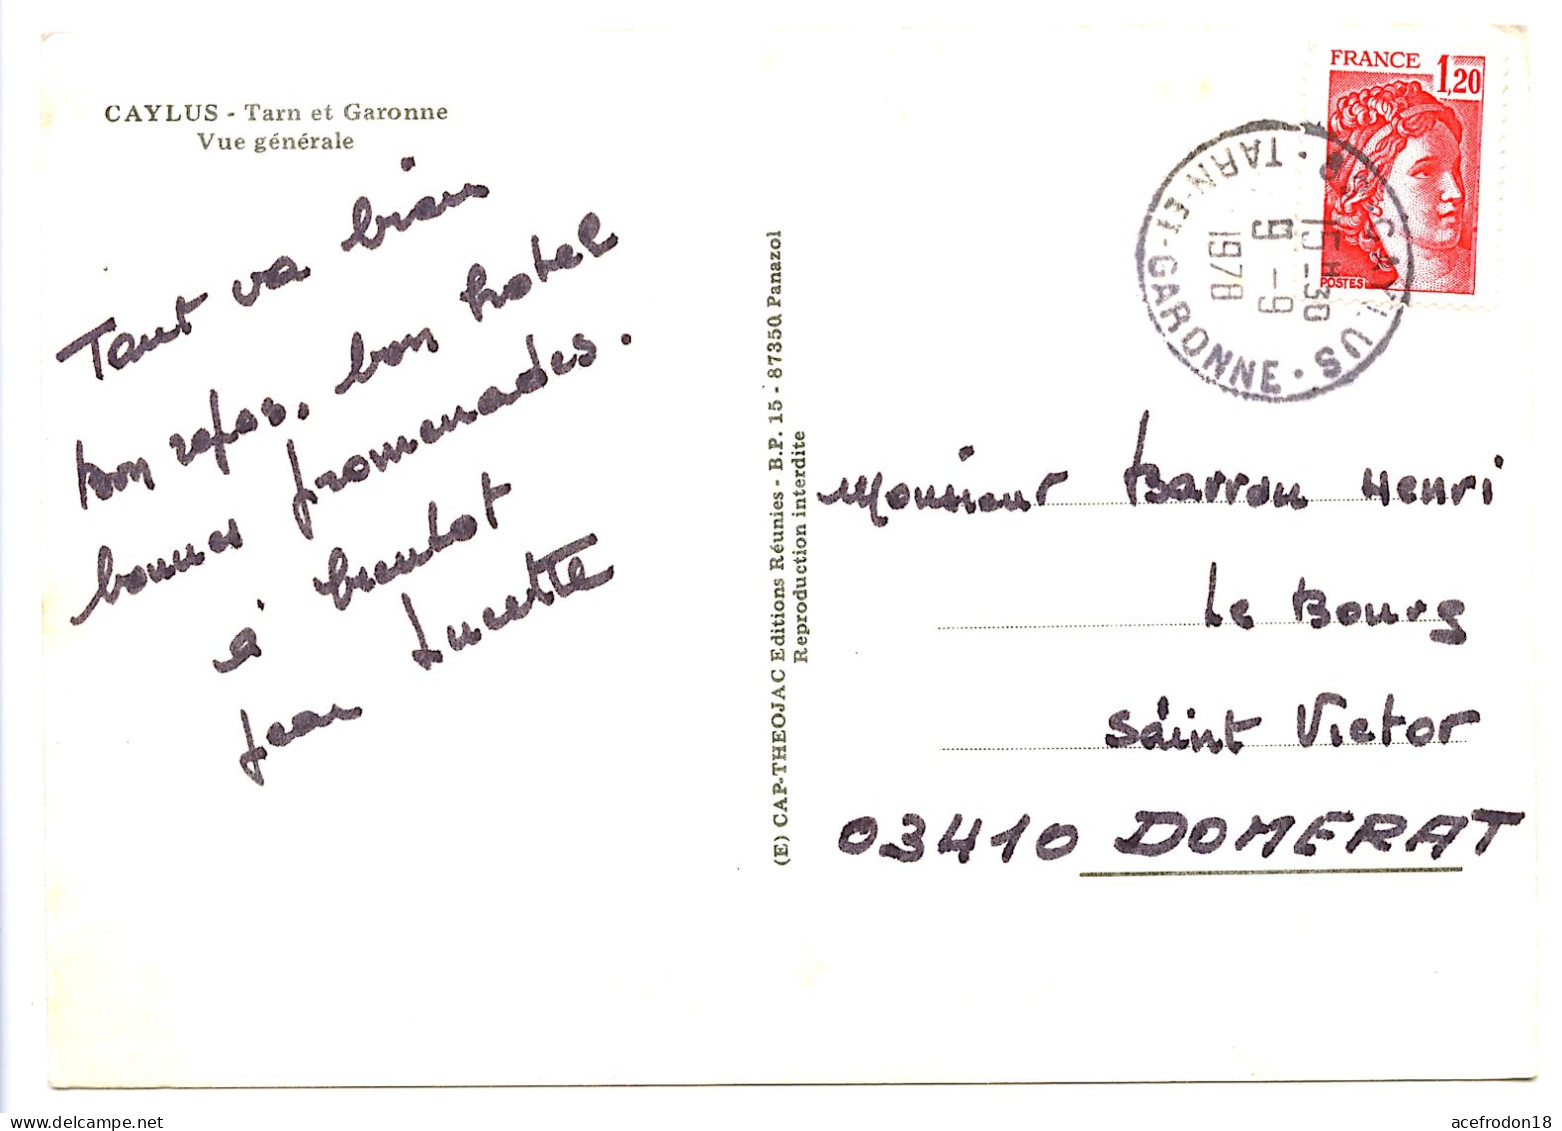 CAYLUS - Tarn et Garonne
Vue générale
Tout va bien
bon repos, bon hotel
bonnes promenades.
à bientot
Jean Lucette
(E) CAP-THEOJAC Editions Réunies - B.P. 15 - 87350 Panazol
Reproduction interdite
FRANCE 1,20
POSTES
CAYLUS · TARN-ET-GARONNE ·
15H-30
9-9
1978
Monsieur Barron Henri
Le Bourg
Saint Victor
03410 DOMERAT
acefrodon18